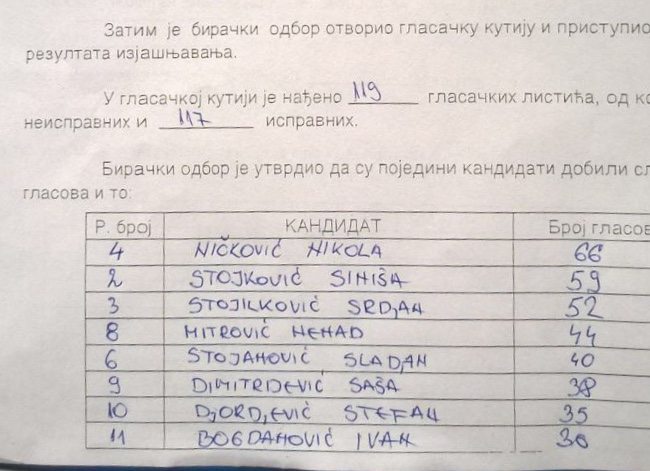 Затим је бирачки одбор отворио гласачку кутију и приступио
резултата изјашњавања.
У гласачкој кутији је нађено 119 гласачких листића, од
неисправних и 117 исправних.
Бирачки одбор је утврдио да су поједини кандидати добили
гласова и то:
Р. број КАНДИДАТ Број гласов
4 NIČKOVIĆ NIKOLA 66
2 STOJKOVIĆ SINIŠA 59
3 STOJILKOVIĆ SRDJAN 52
8 MITROVIĆ NENAD 44
6 STOJANOVIĆ SLADJAN 40
9 DIMITRIJEVIĆ SAŠA 38
10 DJORDJEVIĆ STEFAN 35
11 BOGDANOVIĆ IVAN 30